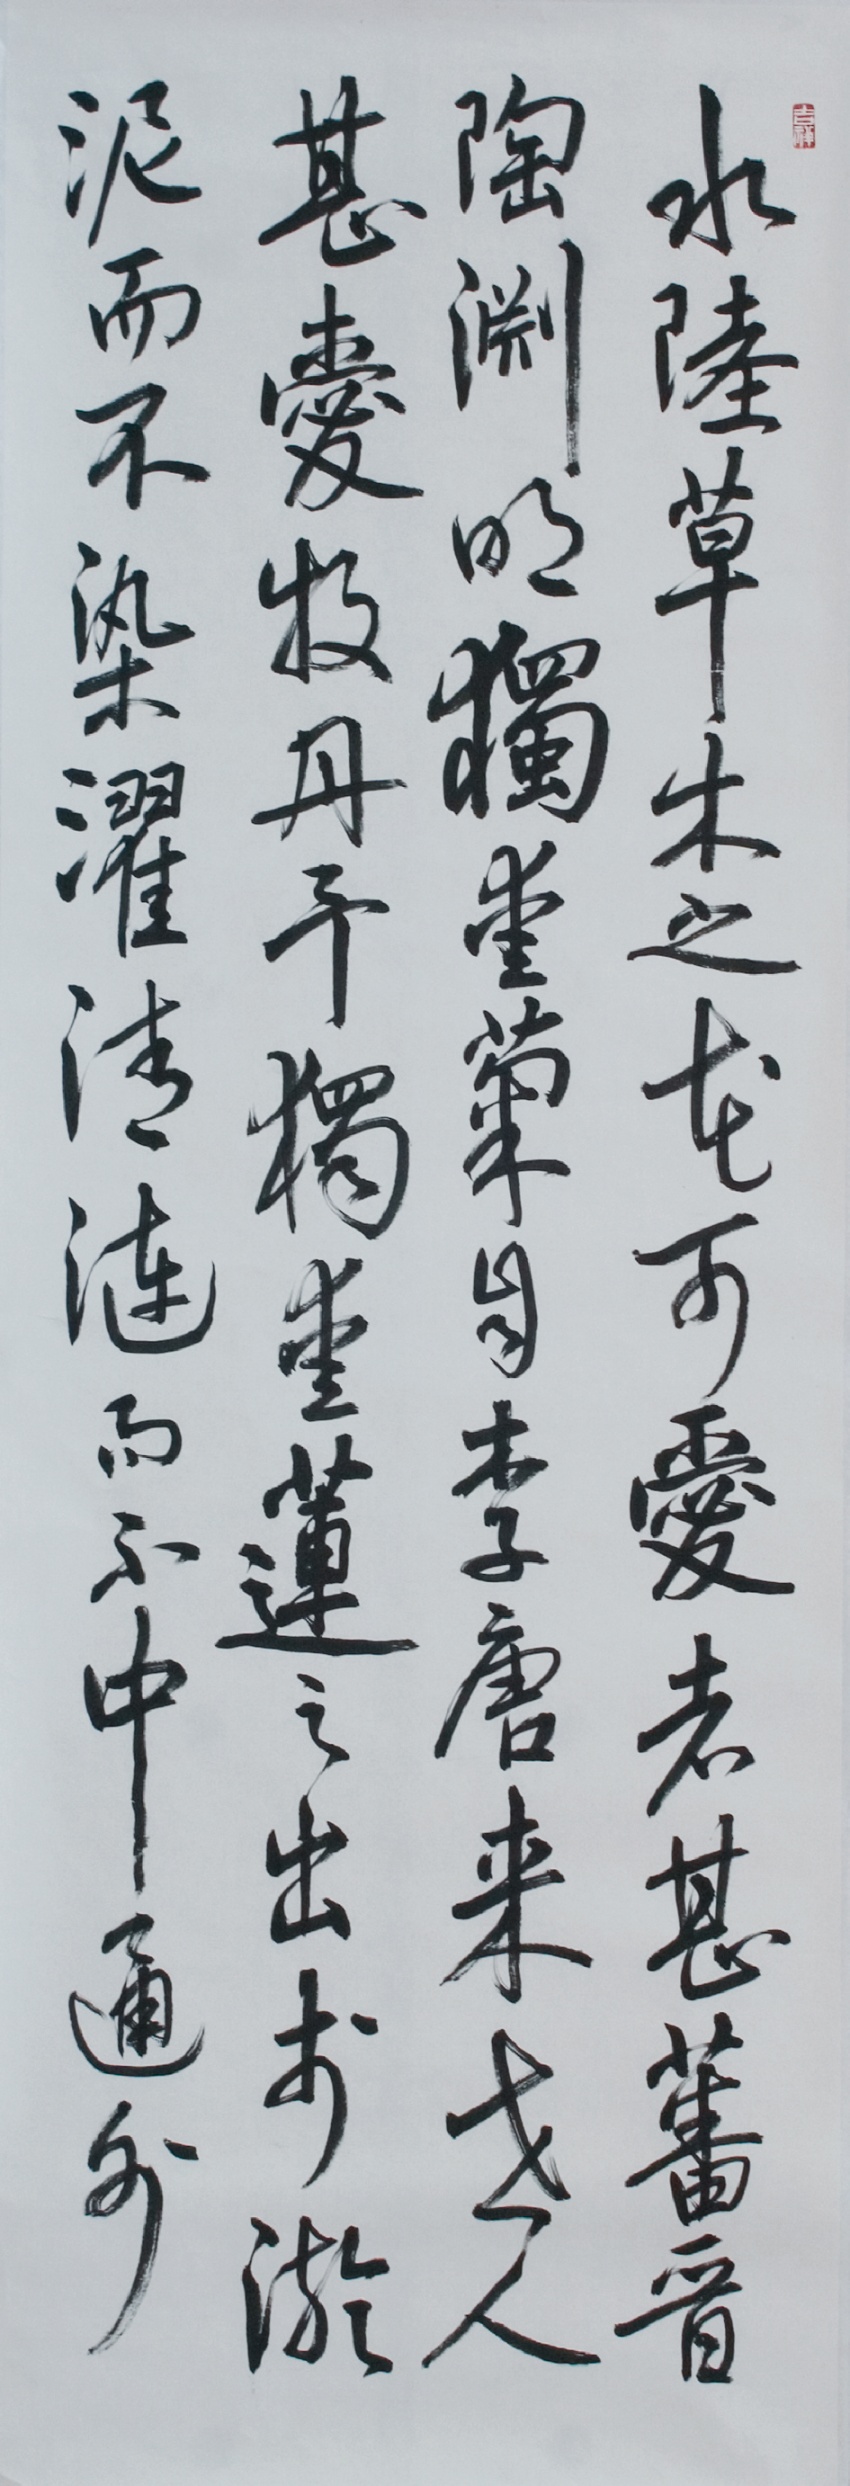 吉祥
水陸草木之花可愛者甚蕃晉
陶淵明獨愛菊自李唐来世人
甚愛牡丹予獨愛蓮之出於淤
泥而不染濯清漣而不中通外